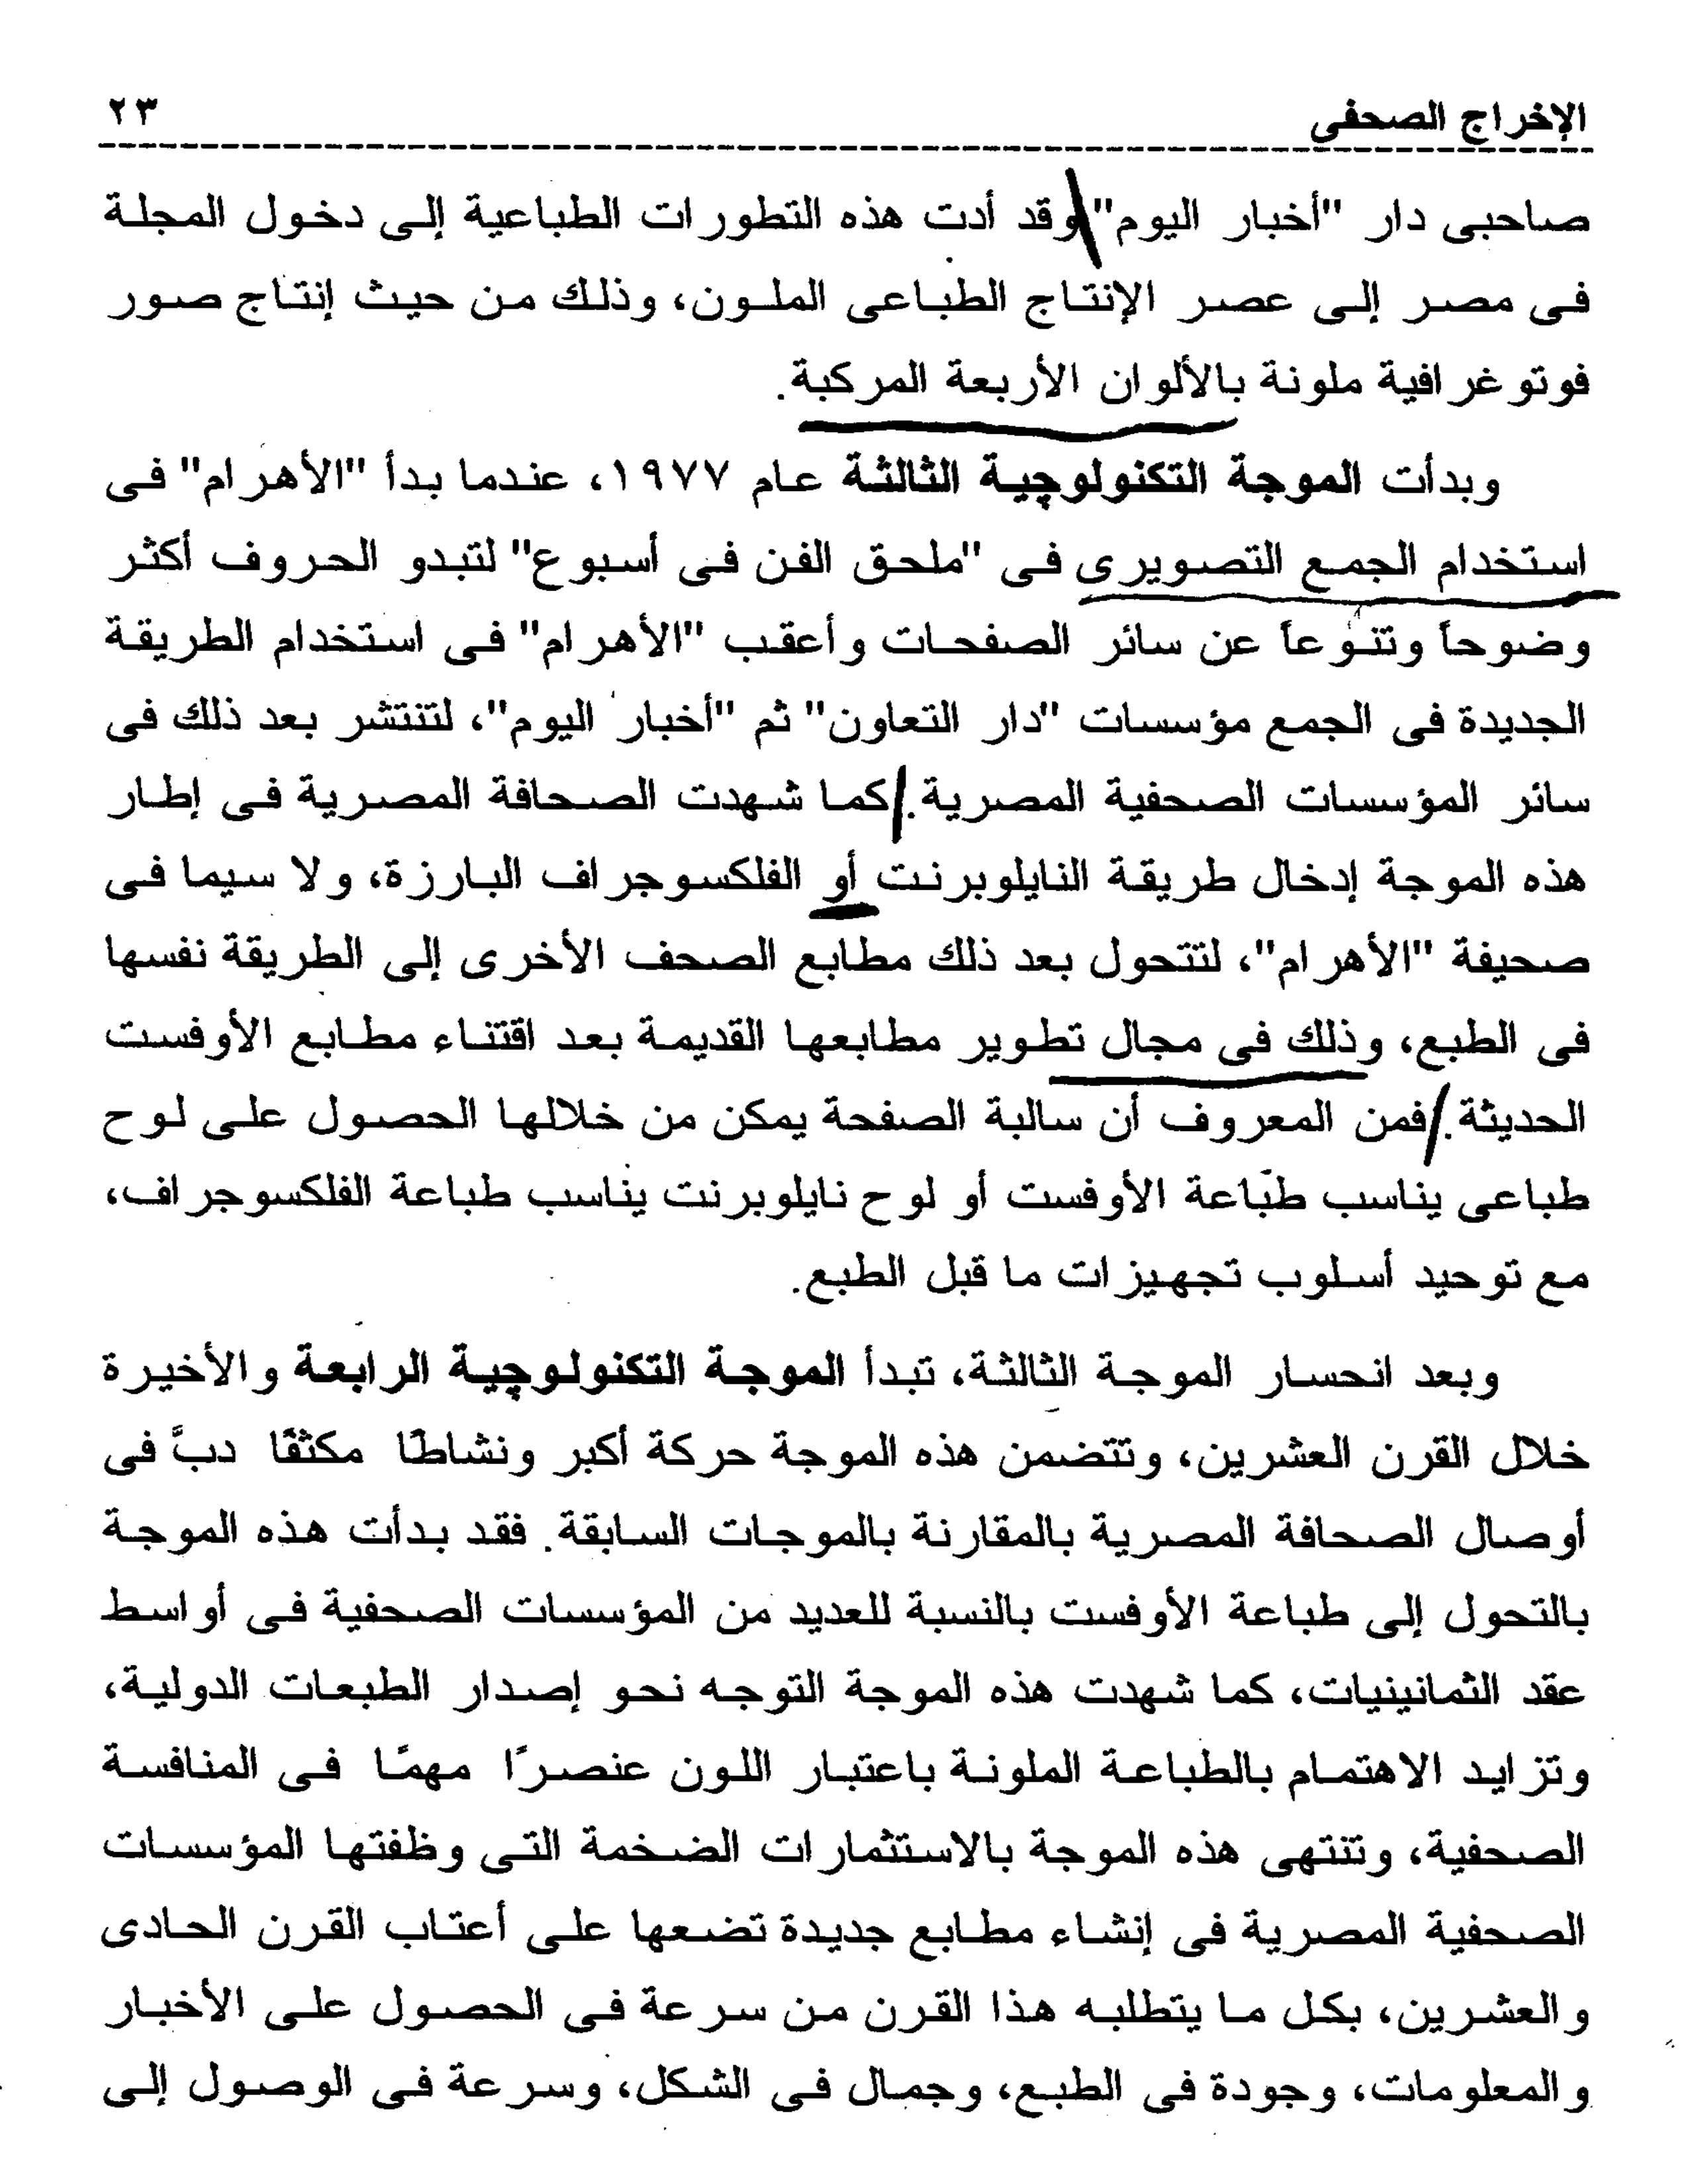 الإخراج الصحفى ٢٣
صاحبى دار "أخبار اليوم" وقد أدت هذه التطورات الطباعية إلى دخول المجلة
فى مصر إلى عصر الإنتاج الطباعى الملون، وذلك من حيث إنتاج صور
فوتوغرافية ملونة بالألوان الأربعة المركبة.
وبدأت الموجة التكنولوچية الثالثة عام ١٩٧٧، عندما بدأ "الأهرام" فى
استخدام الجمع التصويرى فى "ملحق الفن فى أسبوع" لتبدو الحروف أكثر
وضوحاً وتنوعاً عن سائر الصفحات وأعقب "الأهرام" فى استخدام الطريقة
الجديدة فى الجمع مؤسسات "دار التعاون" ثم "أخبار اليوم"، لتنتشر بعد ذلك فى
سائر المؤسسات الصحفية المصرية. كما شهدت الصحافة المصرية فى إطار
هذه الموجة إدخال طريقة النايلوبرنت أو الفلكسوجراف البارزة، ولا سيما فى
صحيفة "الأهرام"، لتتحول بعد ذلك مطابع الصحف الأخرى إلى الطريقة نفسها
فى الطبع، وذلك فى مجال تطوير مطابعها القديمة بعد اقتناء مطابع الأوفست
الحديثة. فمن المعروف أن سالبة الصفحة يمكن من خلالها الحصول على لوح
طباعى يناسب طباعة الأوفست أو لوح نايلوبرنت يناسب طباعة الفلكسوجراف،
مع توحيد أسلوب تجهيزات ما قبل الطبع.
وبعد انحسار الموجة الثالثة، تبدأ الموجة التكنولوچية الرابعة والأخيرة
خلال القرن العشرين، وتتضمن هذه الموجة حركة أكبر ونشاطًا مكثفًا دبَّ فى
أوصال الصحافة المصرية بالمقارنة بالموجات السابقة. فقد بدأت هذه الموجة
بالتحول إلى طباعة الأوفست بالنسبة للعديد من المؤسسات الصحفية فى أواسط
عقد الثمانينيات، كما شهدت هذه الموجة التوجه نحو إصدار الطبعات الدولية،
وتزايد الاهتمام بالطباعة الملونة باعتبار اللون عنصرًا مهمًا فى المنافسة
الصحفية، وتنتهى هذه الموجة بالاستثمارات الضخمة التى وظفتها المؤسسات
الصحفية المصرية فى إنشاء مطابع جديدة تضعها على أعتاب القرن الحادى
والعشرين، بكل ما يتطلبه هذا القرن من سرعة فى الحصول على الأخبار
والمعلومات، وجودة فى الطبع، وجمال فى الشكل، وسرعة فى الوصول إلى